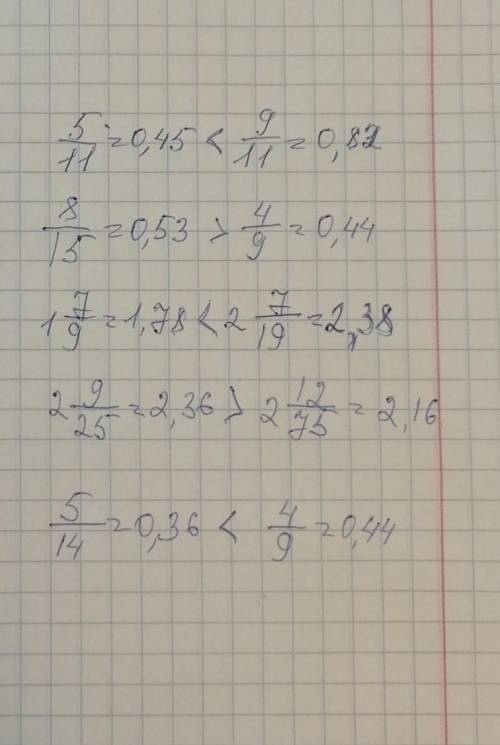 5/11 = 0,45 < 9/11 = 0,82
8/15 = 0,53 > 4/9 = 0,44
1 7/9 = 1,78 < 2 7/19 = 2,38
2 9/25 = 2,36 > 2 12/75 = 2,16
5/14 = 0,36 < 4/9 = 0,44